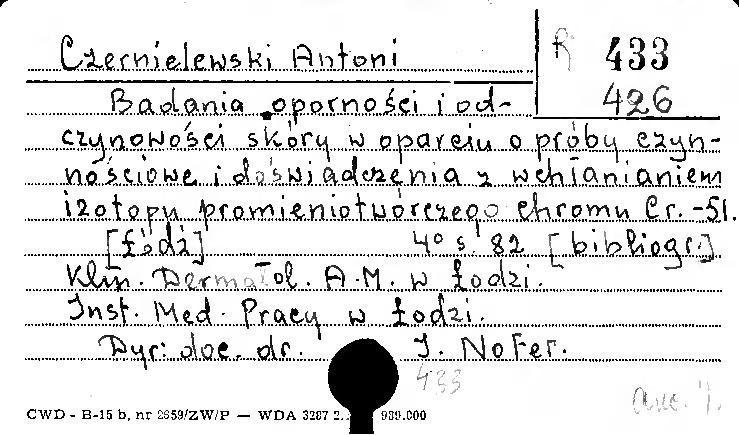 Czernielewski Antoni
R 433
426
Badania oporności i od-
czynowości skóry w oparciu o próby czyn-
nościowe i doświadczenia z wchłanianiem
izotopu promieniotwórczego chromu Cr.-51.
[Łódź] 4° s. 82 [bibliogr.]
Klin. Dermatol. A.M. w Łodzi.
Inst. Med. Pracy w Łodzi.
Dyr: doc. dr. J. Nofer.
433
CWD - B-15 b, nr 2659/ZW/P — WDA 3287 989.000